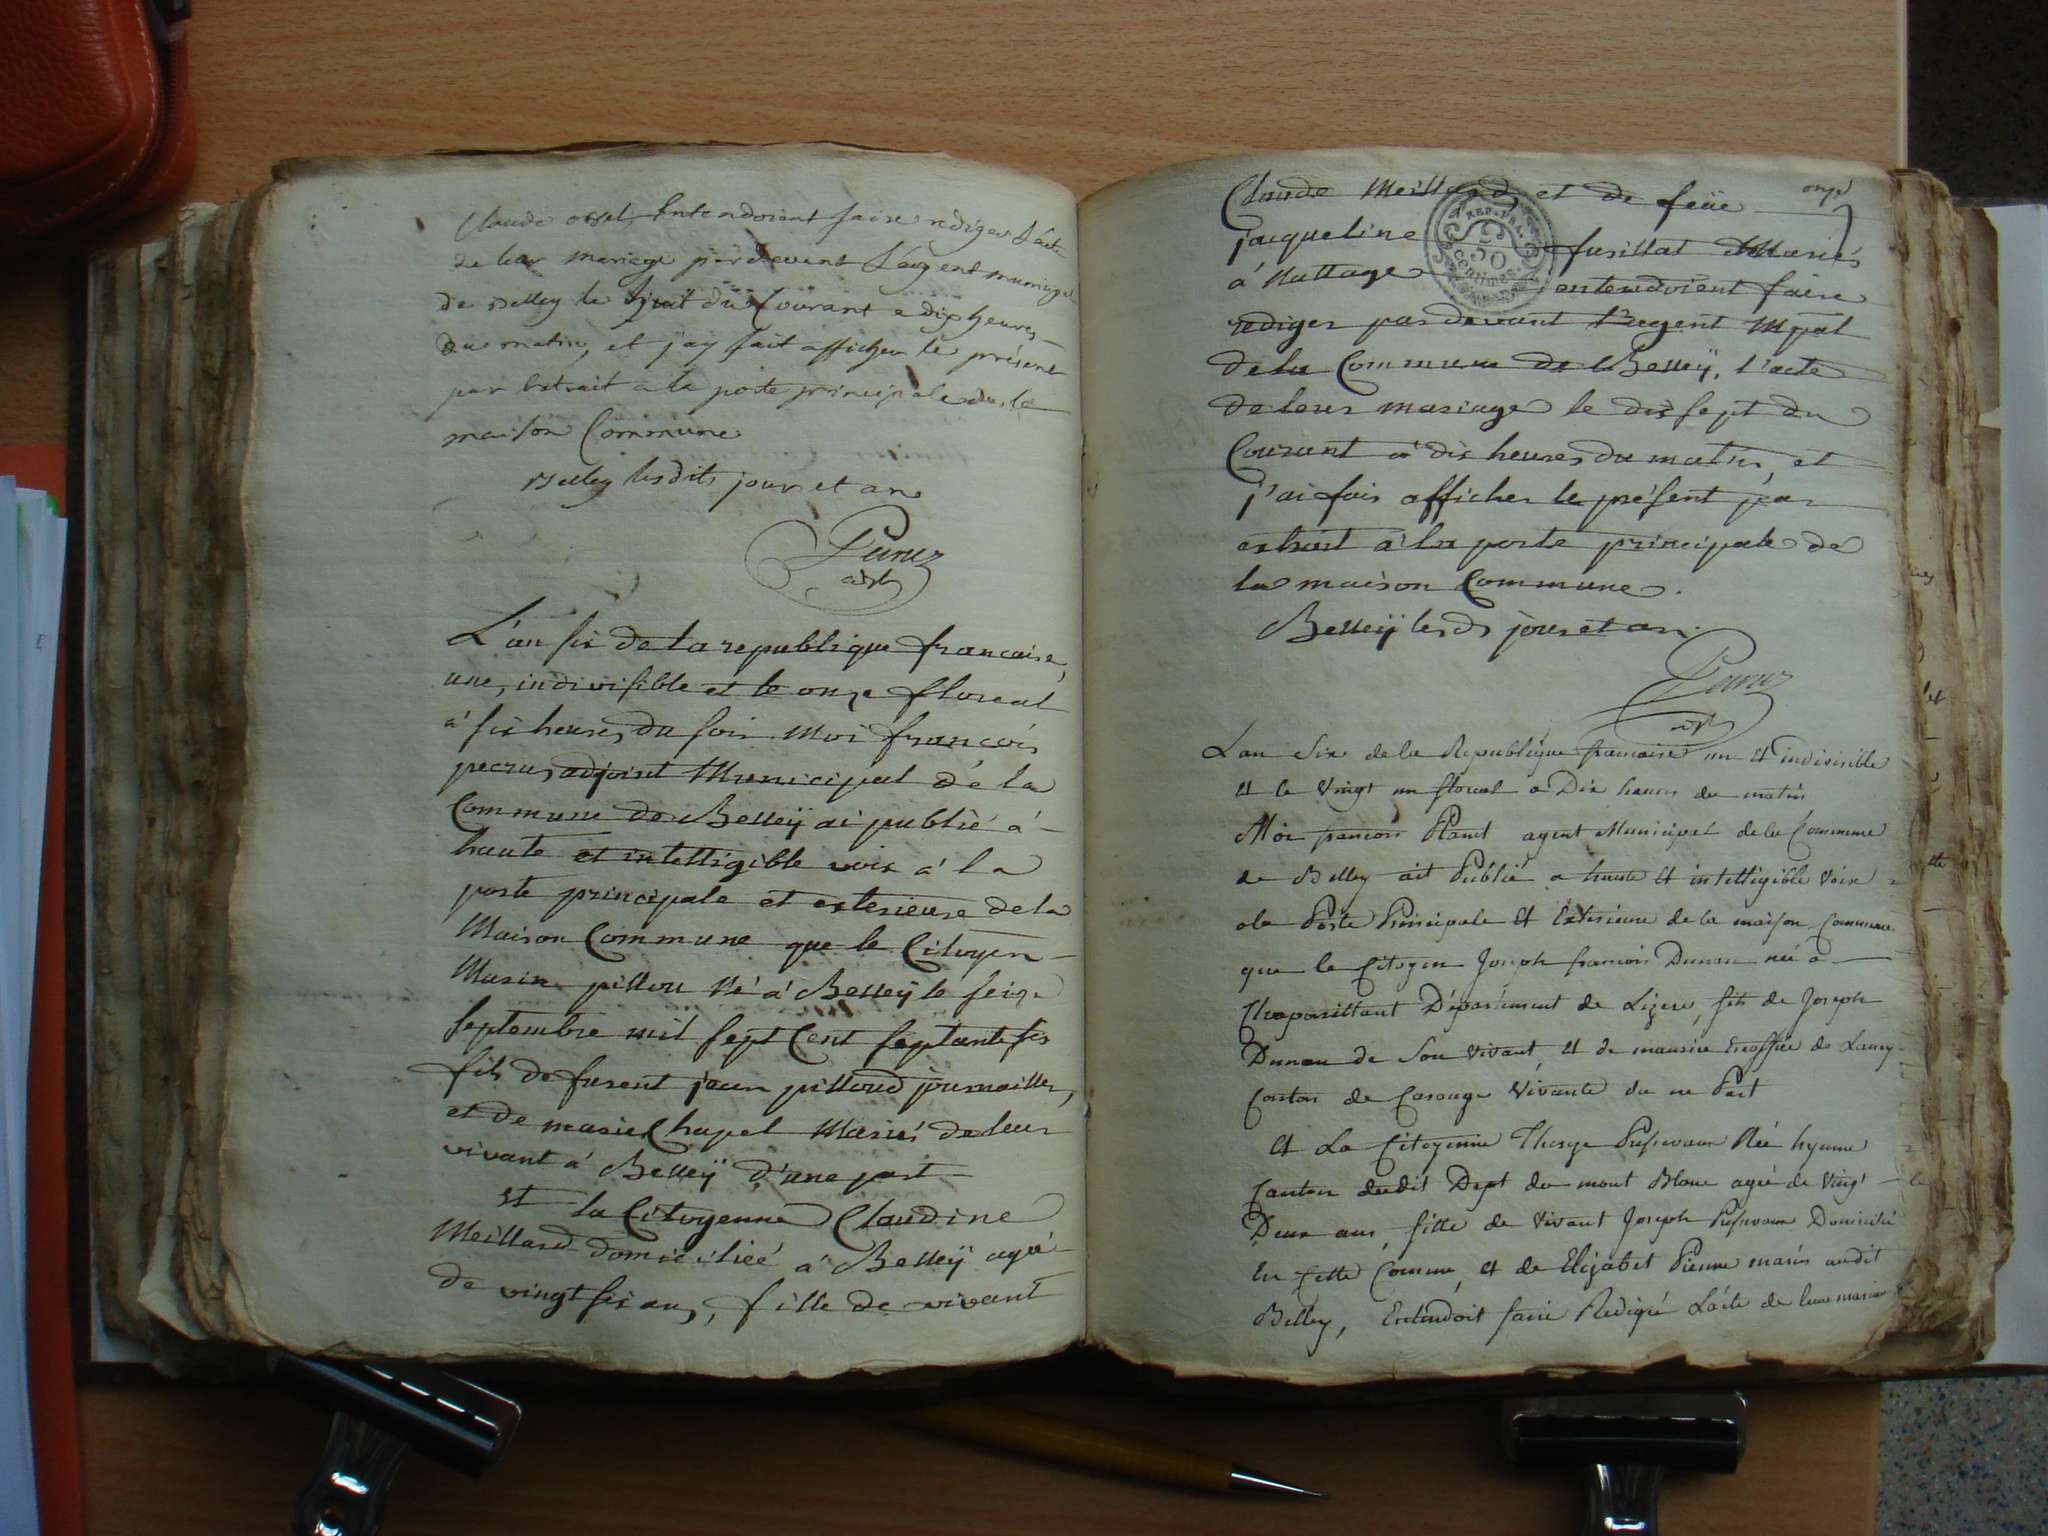 Claude ossel, Entendoient faire rediger L'acte
de leur mariage pardevant L'agent municipal
de Belley le huit du Courant a dix heures
du matin, et j'ay fait afficher le présent
par Extrait a la porte principale de la
maison Commune
Belley lesdits jour et an
L'an six de la republique francaise,
une, indivisible et le onze floreal
à six heures du soir Moi francois
adjoint Municipal de la
Commune de Belleÿ ai publié à
haute et intelligible voix à la
porte principale et exterieure de la
Maison Commune que le Citoyen
Marin pillou Né à Belleÿ le seize
septembre mil sept Cent septante six
fils de furent jean pilloud journaillier,
et de marie Chapel Mariés de leur
vivant à Belleÿ d'une part
et la Citoyenne Claudine
Meilland domiciliée à Belleÿ agée
de vingt six ans, fille de vivant
onze
Claude Meilland et de feüe
jacqueline fusillat Mariés
à Nattage entendoient faire
REP. FRA.
50
centimes
rediger pardevant l'agent Mpal
de la Commune de Belleÿ, l'acte
de leur mariage le dix sept du
Courant à dix heures du matin, et
j'ai fais afficher le présent par
extrait à la porte principale de
la maison Commune.
Belleÿ lesds jour et an.
L'an Six de la Republique francaise un et indivisible
et le vingt un floreal a Dix heures du matin
Moi francois agent Municipal de la Commune
de Belley ait Publié a haute et intelligible Voix
a la Porte Principale et Extérieure de la maison Commune
que le Citoyen Joseph francois Dunan né à
Département de Lizere, fils de Joseph
Dunan de Son vivant et de de
Canton de Carouge Vivante du ne Part
et La Citoyenne Née hyenne
Canton dudit Dept du mont Blanc agée de Vingt
Deux ans, fille de Vivant Joseph Domicilié
En Cette Comune, et de Elizabet Pienne mariés audit
Belley, Entendoit faire Redigé L'acte de leur mariage